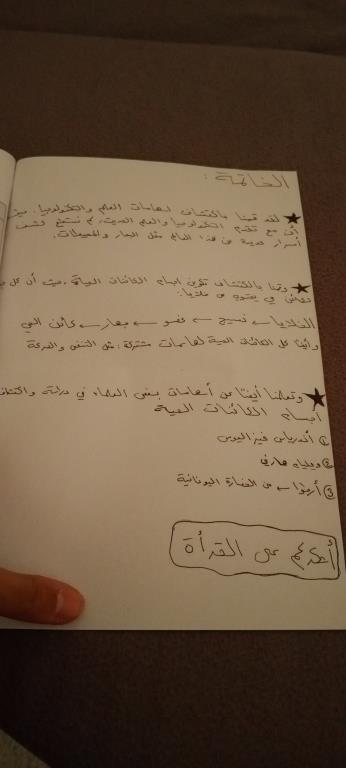 الخاتمة :
★ لقد قمنا باكتشاف اسهامات العلم والتكنولوجيا، حيث
أن مع تقدم التكنولوجيا والعلم الحديث، تم نستطع كشف
أسرار عديدة عن هذا العالم مثل البحار والمحيطات.
★ وقمنا باكتشاف تكون اجسام الكائنات الحية، حيث أن كل
كائن حي يتكون من خلايا.
الخلايا ← نسيج ← عضو ← جهاز ← كائن الحي
وأيضا كل الكائنات الحية لها سمات مشتركة: مثل التنفس والحركة
★ وتعلمنا أيضا عن أسهامات بعض العلماء في دراسة واكتشاف
اجسام الكائنات الحية
① أندرياس فيزاليوس
② ويليام هارفي
③ أرسطو ← من الحضارة اليونانية
أشكركم على القرأة